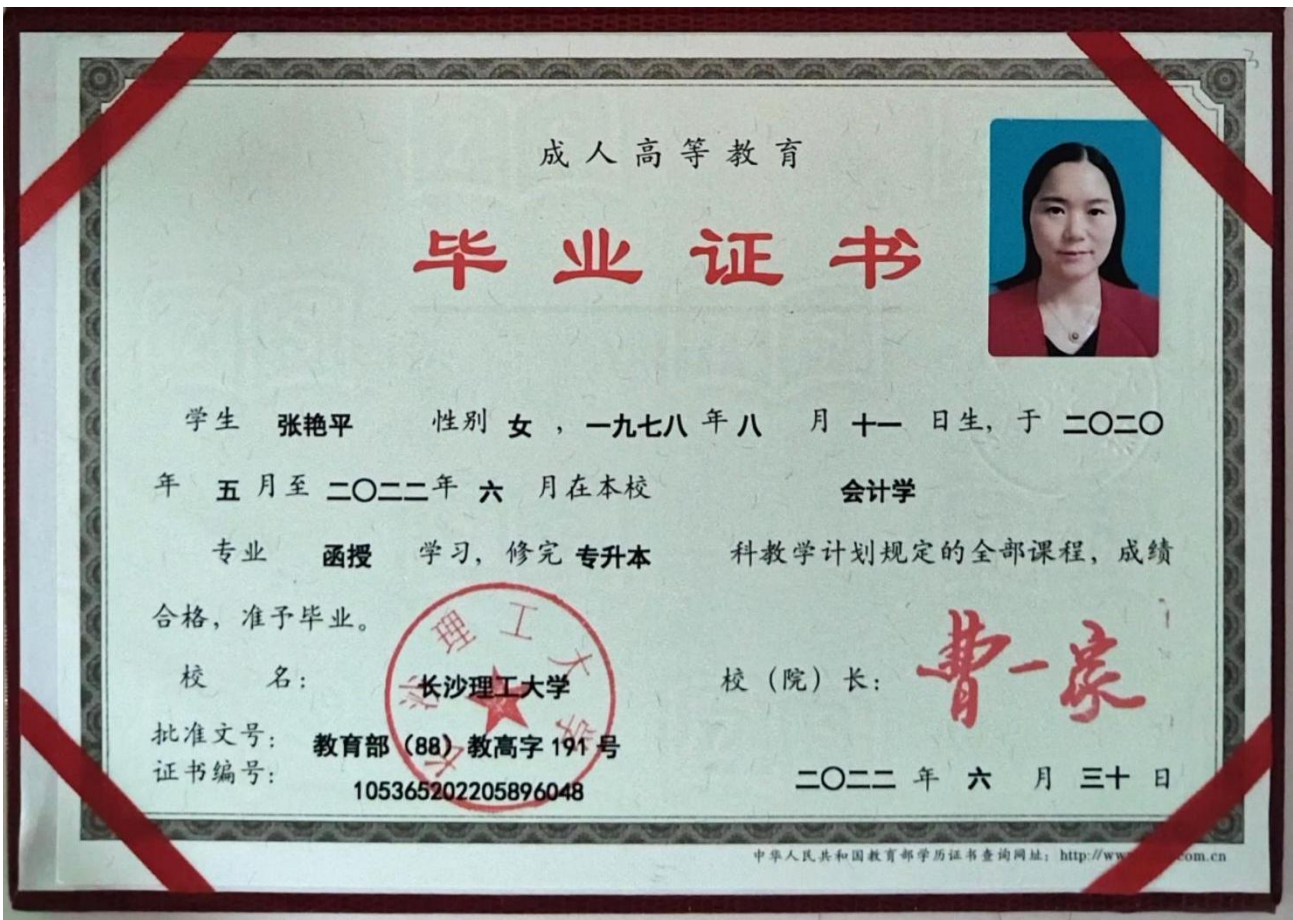 成人高等教育
毕业证书
学生 张艳平 性别 女 , 一九七八 年 八 月 十一 日生, 于 二〇二〇
年 五 月至 二〇二二 年 六 月在本校 会计学
专业 函授 学习, 修完 专升本 科教学计划规定的全部课程, 成绩
合格, 准予毕业。
校 名: 长沙理工大学 校（院）长: 曹一家
长沙理工大学
批准文号: 教育部（88）教高字 191 号
证书编号: 105365202205896048
二〇二二 年 六 月 三十 日
中华人民共和国教育部学历证书查询网址: http://ww com.cn
3